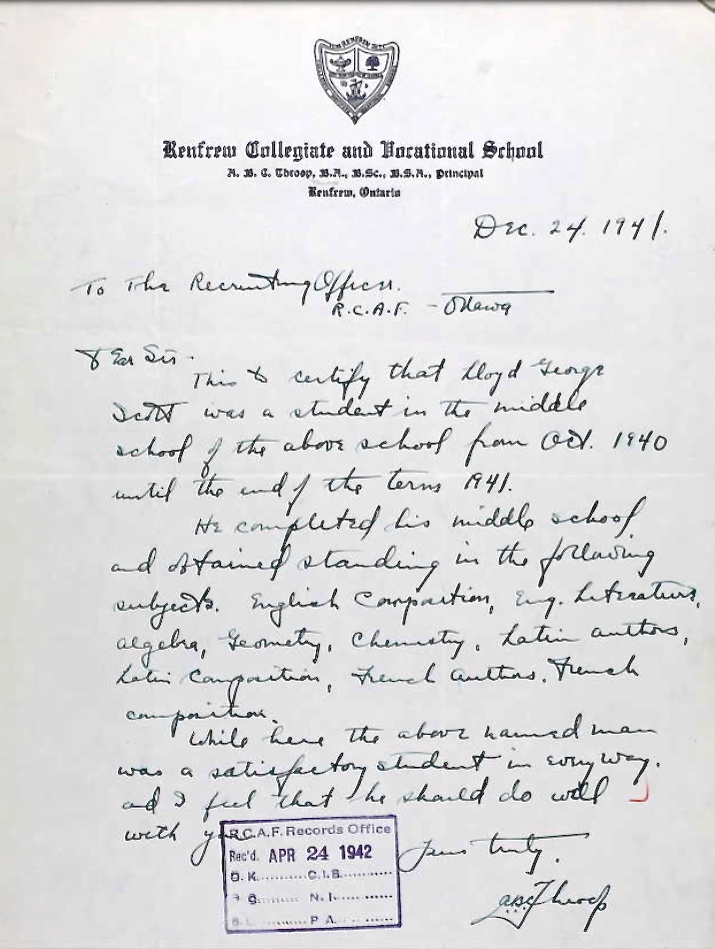 Renfrew Collegiate and Vocational School
A. B. C. Throop, B.A., B.Sc., B.S.A., Principal
Renfrew, Ontario
Dec. 24. 1941.
To The Recruiting Officer.
R.C.A.F. - Ottawa
Dear Sir.
This to certify that Lloyd George
Scott was a student in the middle
school of the above school from Oct. 1940
until the end of the term 1941.
He completed his middle school
and obtained standing in the following
subjects. English Composition, Eng. Literature,
algebra, Geometry, Chemistry, Latin authors,
Latin Composition, French Authors, French
composition.
While here the above named man
was a satisfactory student in every way.
and I feel that he should do well
with you.
Yours truly.
ABC Throop
R.C.A.F. Records Office
Rec'd. APR 24 1942
C.I.B.
N.I.
P A.